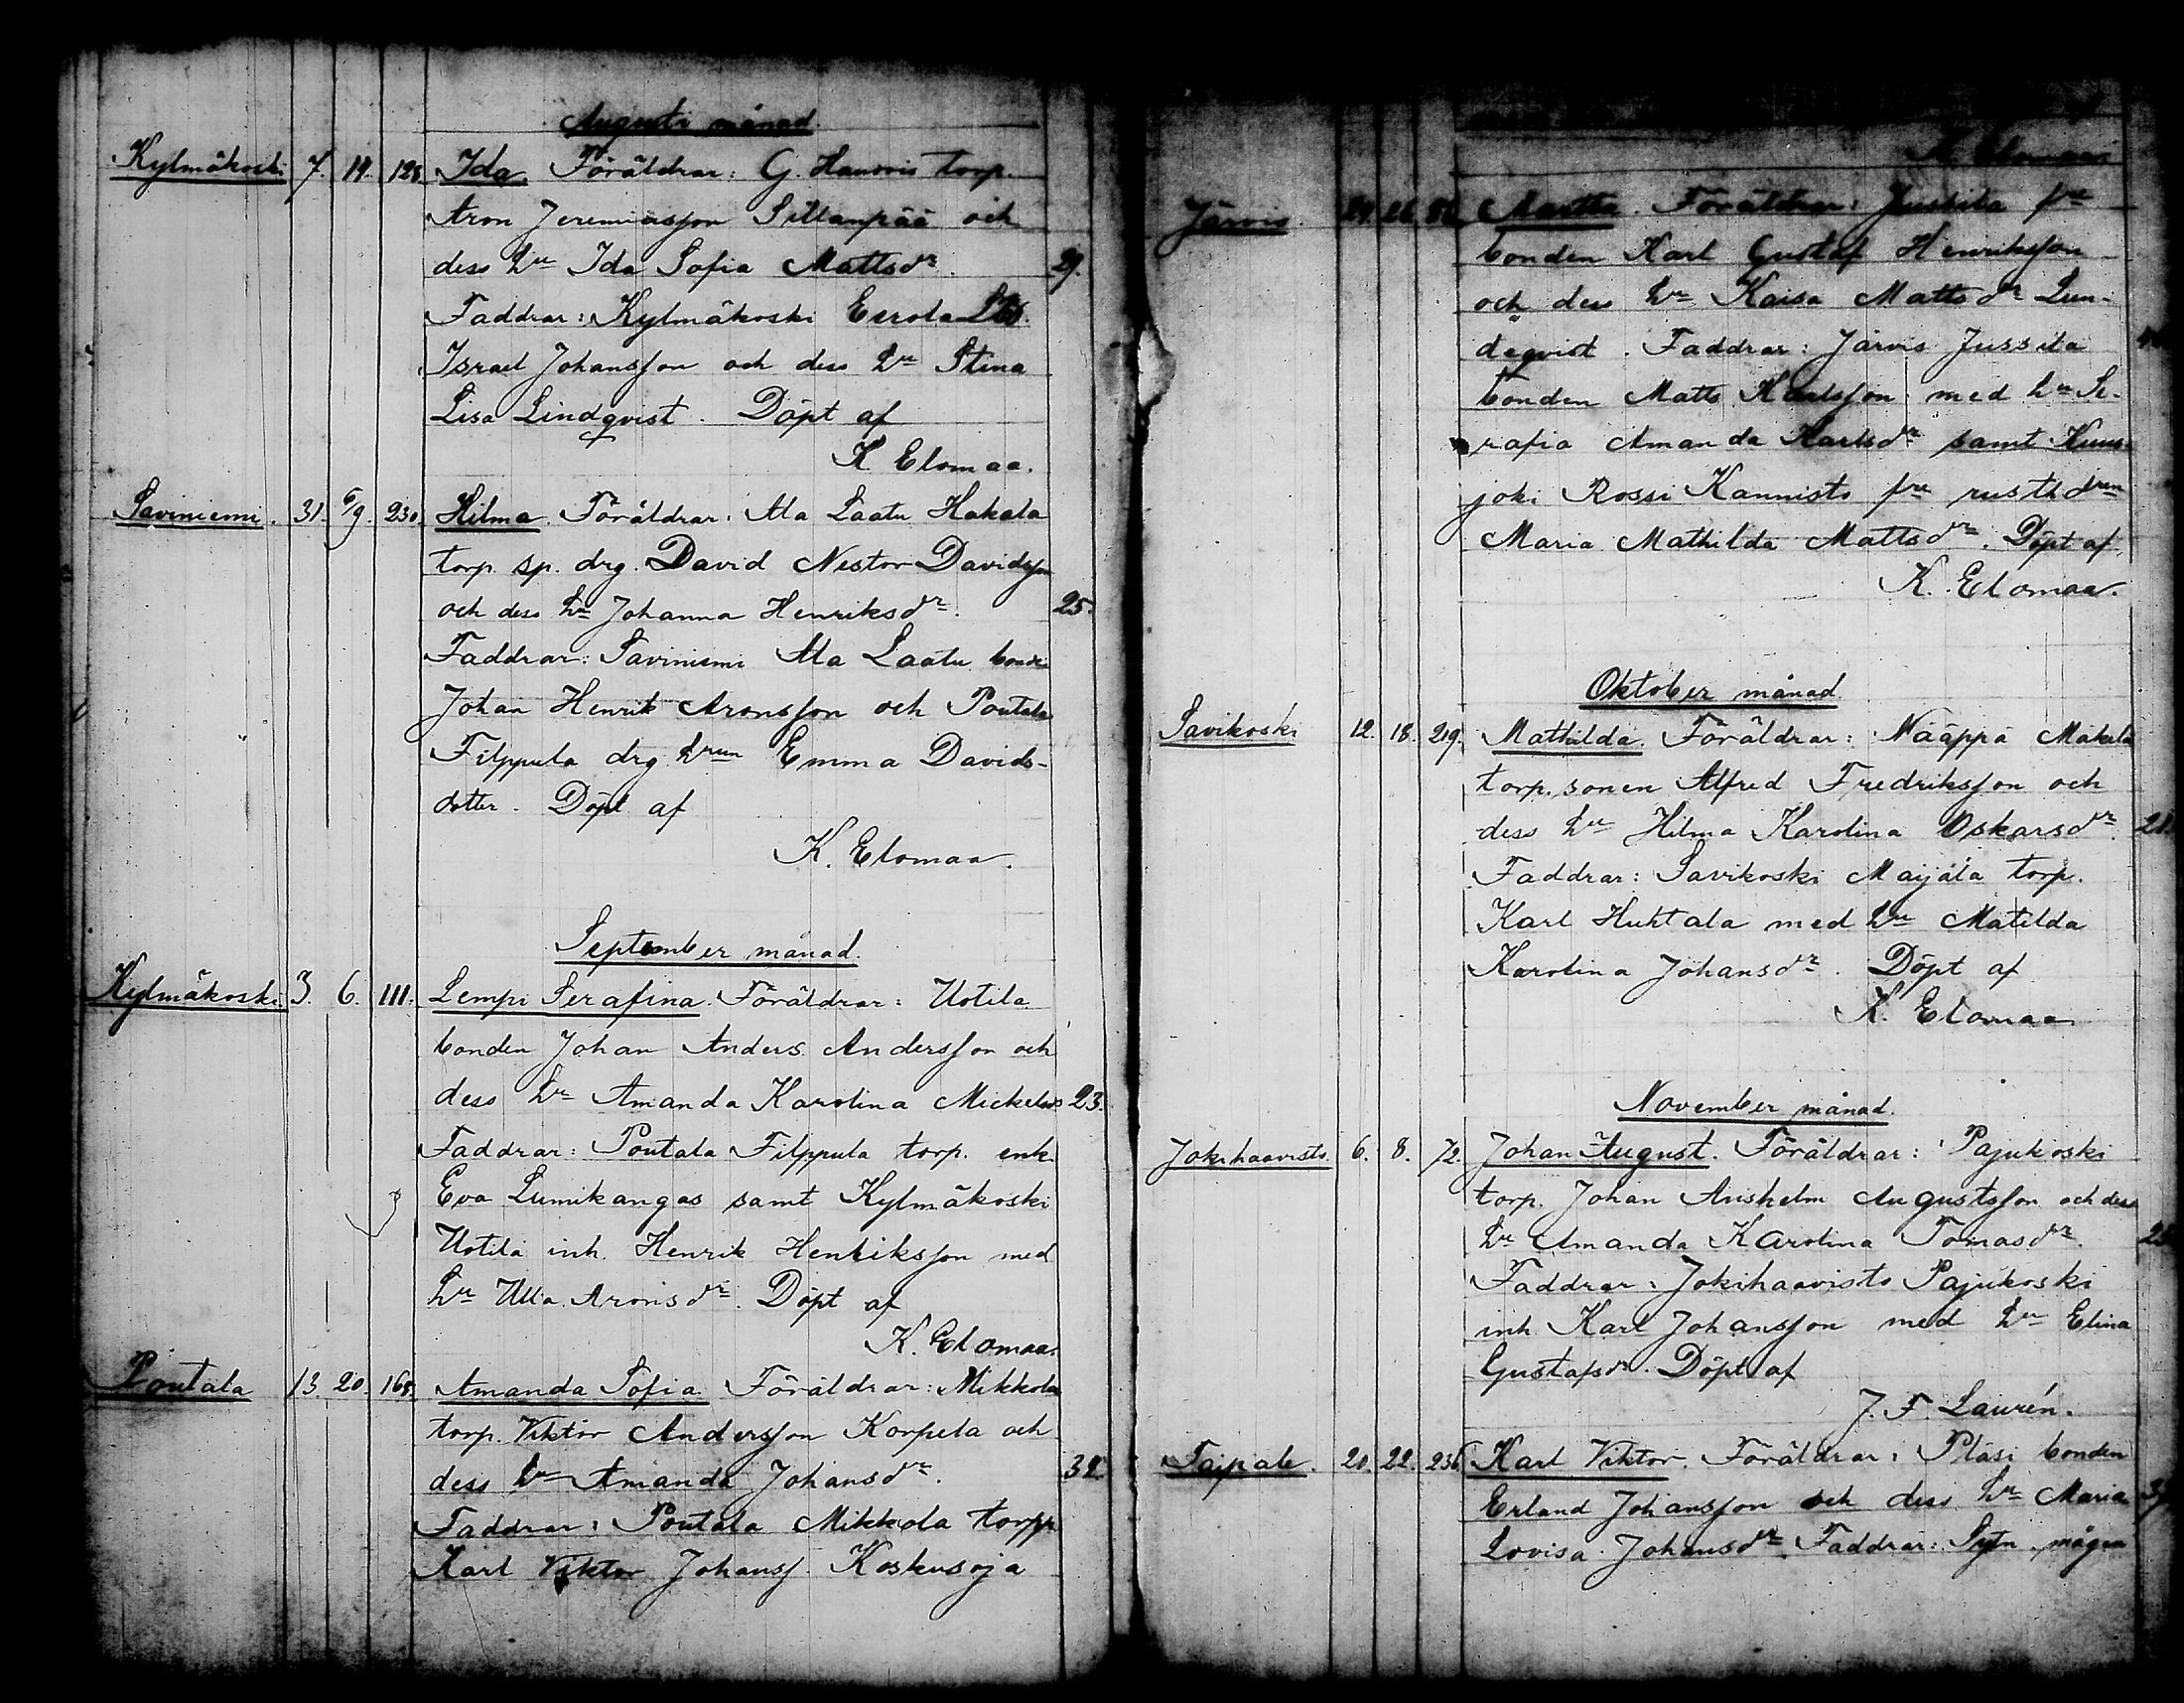 Augusti månad
Kylmäkoski 7. 14. 128. Ida. Föräldrar: G. Hannois torp.
Aron Jeremiasson Sillanpää och
dess hu Ida Sofia Mattsdr. 29.
Faddrar: Kylmäkoski Eerola
Israel Johansson och dess hu Stina
Lisa Lindqvist. Döpt af
K Elomaa.
Saviniemi. 31. 6/9. 230. Hilma. Föräldrar: Ala Laatu Hakala
torp. sp. drg. David Nestor Davidsson
och dess hu Johanna Henriksdr. 25.
Faddrar: Saviniemi Ala Laatu bonden
Johan Henrik Aronsson och Poutala
Filppula drg. hrun Emma Davids-
dotter. Döpt af
K. Elomaa.
September månad.
Kylmäkoski 3. 6. 111. Lempi Serafina. Föräldrar: Uotila
bonden Johan Anders Andersson och
dess hu Amanda Karolina Mickelsd 23.
Faddrar: Poutala Filppula torp. enk.
Eva Lumikangas samt Kylmäkoski
Uotila inh. Henrik Henriksson med
hu Ulla Aronsdr. Döpt af
K. Elomaa.
Poutala 13. 20. 168. Amanda Sofia. Föräldrar: Mikkola
torp. Viktor Andersson Korpela och
dess hu Amanda Johansdr. 32
Faddrar: Poutala Mikkola torp.
Karl Viktor Johanss. Koskusoja
K. Elomaa
Järvis. 24. 26. Martta. Föräldrar: Jussila fre
bonden Karl Gustaf Henriksson
och dess hu Kaisa Mattsdr Lun-
deqvist. Faddrar: Järvis Jussila
bonden Matts Karlsson med hu Se-
rafia Amanda Karlsdr samt Kuus-
joki Rossi Kannisto fre rusthdrun
Maria Mathilda Mattsdr. Döpt af
K. Elomaa.
Oktober månad
Savikoski 12. 18. 219. Mathilda. Föräldrar: Nääppä Mäkelä
torp. sonen Alfred Fredriksson och
dess hu Hilma Karolina Oskarsdr. 21.
Faddrar: Savikoski Maijala torp.
Karl Huhtala med hu Matilda
Karolina Johansdr. Döpt af
K. Elomaa
November månad.
Jokihaavisto. 6. 8. 72. Johan August. Föräldrar: Pajukoski
torp. Johan Anshelm Augustsson och dess
hu Amanda Karolina Tomasdr.
Faddrar: Jokihaavisto Pajukoski
inh Karl Johansson med hu Elina
Gustafsdr. Döpt af
J. F. Laurén.
Taipale. 20. 22. 236. Karl Viktor. Föräldrar: Pläsi bonden
Erland Johansson och dess hu Maria
Lovisa Johansdr. Faddrar: Sytn. mågen